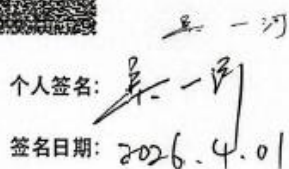 吴一河
个人签名：吴一河
签名日期：2026.4.01